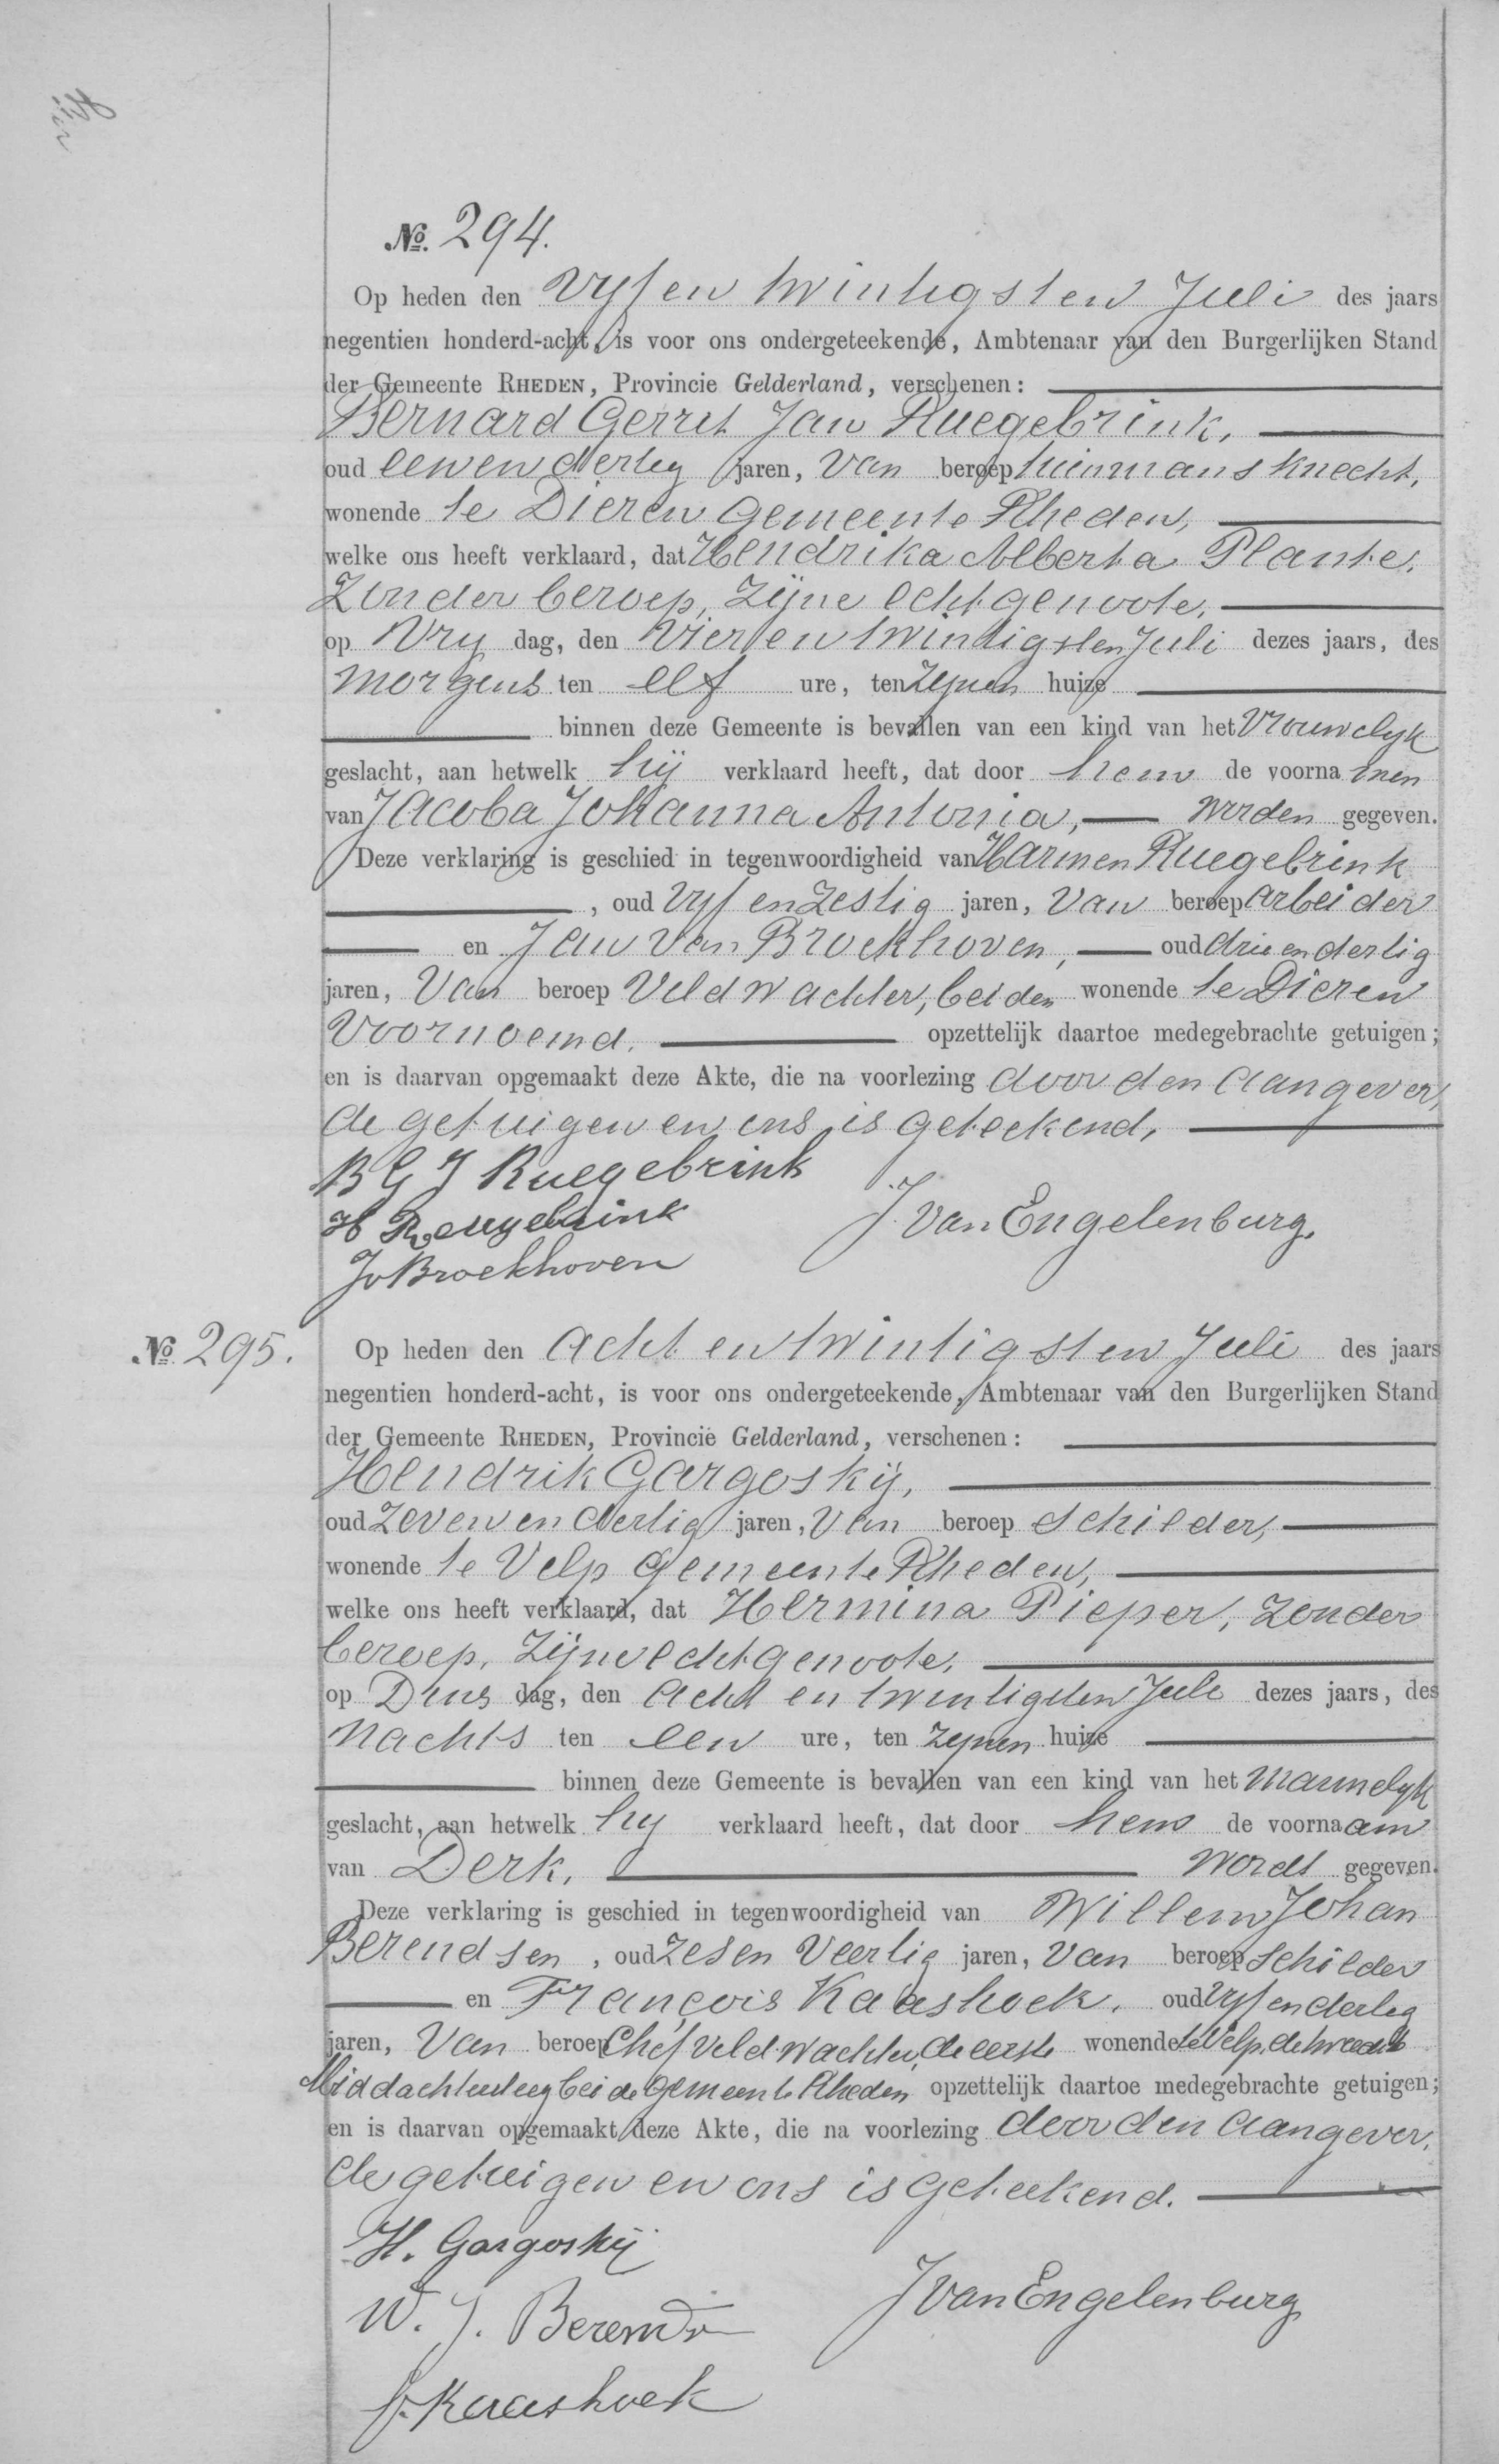 No. 294.
Op heden den Vyf en twintigsten Juli des jaars
negentien honderd-acht, is voor ons ondergeteekende, Ambtenaar van den Burgerlijken Stand
der Gemeente RHEDEN, Provincie Gelderland, verschenen:
Bernard Gerrit Jan Ruegebrink,
oud eenendertig jaren, van beroep tuinmansknecht,
wonende te Dieren gemeente Rheden,
welke ons heeft verklaard, dat Hendrika Alberta Plante,
zonder beroep, zijne echtgenoote,
op Vry dag, den vier en twintigsten Juli dezes jaars, des
morgens ten elf ure, ten zynen huize
binnen deze Gemeente is bevallen van een kind van het vrouwelyk
geslacht, aan hetwelk hij verklaard heeft, dat door hem de voorna men
van Jacoba Johanna Antonia, worden gegeven.
Deze verklaring is geschied in tegenwoordigheid van Harmen Ruegebrink
, oud vyf en zestig jaren, van beroep arbeider
en Jan van Broekhoven, oud drie en dertig
jaren, van beroep veldwachter, beiden wonende te Dieren
voornoemd. opzettelijk daartoe medegebrachte getuigen;
en is daarvan opgemaakt deze Akte, die na voorlezing door den aangever,
de getuigen en ons is geteekend,
B G J Ruegebrink
H Ruegebrink
J. van Engelenburg.
JvBroekhoven
No. 295.
Op heden den acht en twintigsten Juli des jaars
negentien honderd-acht, is voor ons ondergeteekende, Ambtenaar van den Burgerlijken Stand
der Gemeente RHEDEN, Provincie Gelderland, verschenen:
Hendrik Gargoskij,
oud zeven en dertig jaren, van beroep schilder,
wonende te Velp gemeente Rheden,
welke ons heeft verklaard, dat Hermina Pieper, zonder
beroep, zijne echtgenoote,
op Dins dag, den acht en twintigsten Juli dezes jaars, des
nachts ten een ure, ten zynen huize
binnen deze Gemeente is bevallen van een kind van het mannelyk
geslacht, aan hetwelk hy verklaard heeft, dat door hem de voorna am
van Derk, wordt gegeven.
Deze verklaring is geschied in tegenwoordigheid van Willem Johan
Berendsen, oud zes en veertig jaren, van beroep schilder
en François Kaashoek, oud vyf en dertig
jaren, van beroep chef veldwachter, de eerste wonende te Velp, de tweede te
Middachtersteeg beide gemeente Rheden opzettelijk daartoe medegebrachte getuigen;
en is daarvan opgemaakt deze Akte, die na voorlezing door den aangever,
de getuigen en ons is geteekend.
H. Gargoskij
J van Engelenburg
W. J. Berends
F. Kaashoek